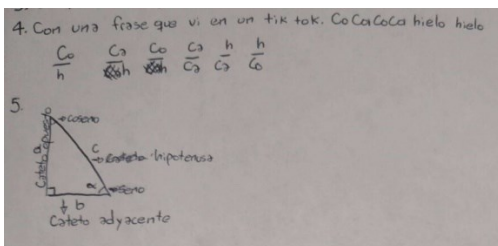 4. Con una frase que vi en un tik tok. CoCaCoCa hielo hielo
Co/h Ca/h Co/h Ca/Ca h/Ca h/Co
5.
Coseno
a
Cateto opuesto
c
hipotenusa
α
Seno
b
Cateto adyacente